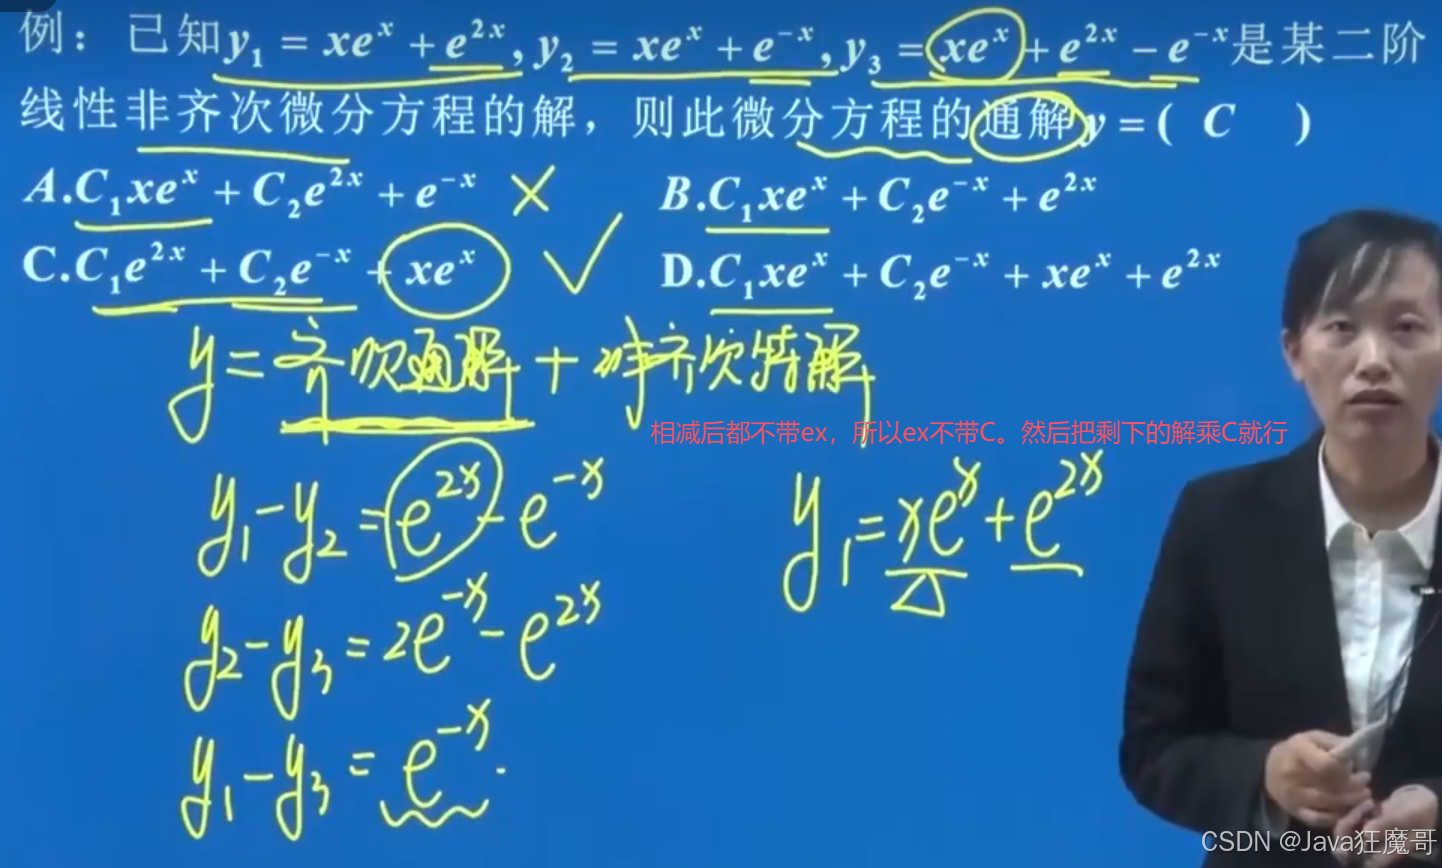 例：已知y₁ = xeˣ + e²ˣ, y₂ = xeˣ + e⁻ˣ, y₃ = xeˣ + e²ˣ − e⁻ˣ是某二阶
线性非齐次微分方程的解，则此微分方程的通解y = ( C )
A.C₁xeˣ + C₂e²ˣ + e⁻ˣ × B.C₁xeˣ + C₂e⁻ˣ + e²ˣ
C.C₁e²ˣ + C₂e⁻ˣ + xeˣ √ D.C₁xeˣ + C₂e⁻ˣ + xeˣ + e²ˣ
y = 齐次通解 + 非齐次特解
相减后都不带ex，所以ex不带C。然后把剩下的解乘C就行
y₁ − y₂ = e²ˣ − e⁻ˣ y₁ = xeˣ + e²ˣ
y₂ − y₃ = 2e⁻ˣ − e²ˣ
y₁ − y₃ = e⁻ˣ.
CSDN @Java狂魔哥